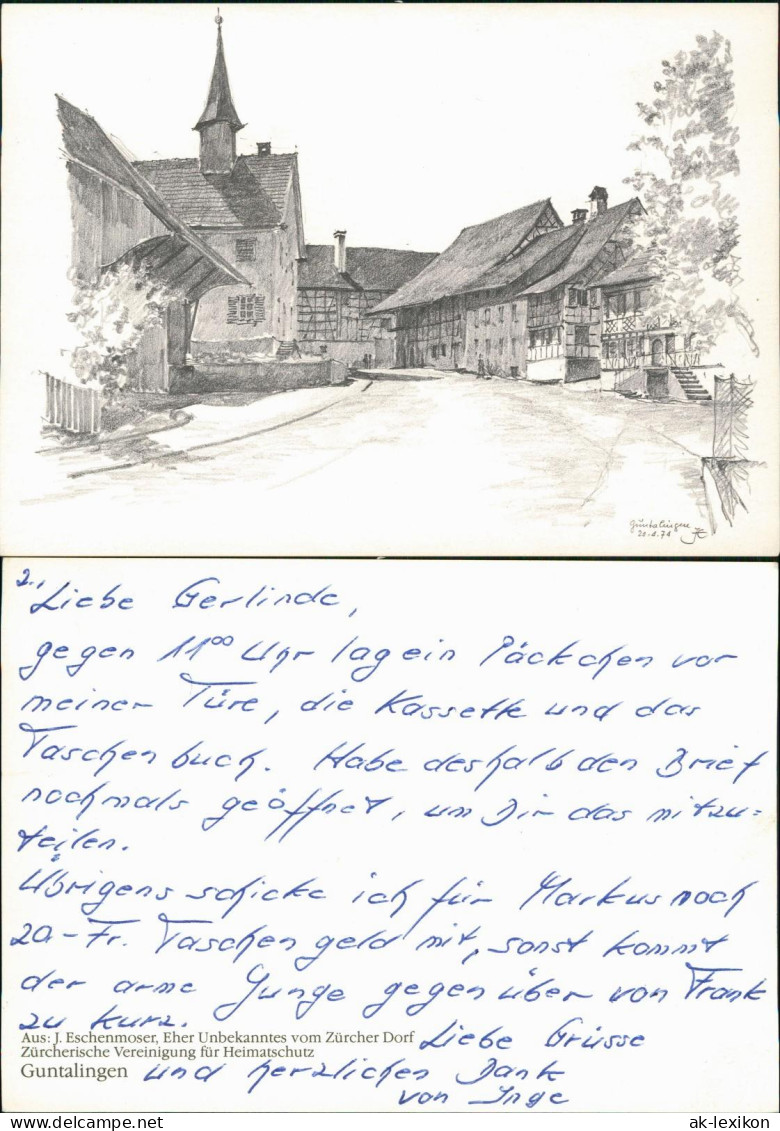 Guntalingen
20.4.74
2.,
Liebe Gerlinde,
gegen 11⁰⁰ Uhr lag ein Päckchen vor
meiner Türe, die Kassette und das
Taschenbuch. Habe deshalb den Brief
nochmals geöffnet, um Dir das mitzu=
teilen.
Übrigens schicke ich für Markus noch
20.- Fr. Taschengeld mit, sonst kommt
der arme Junge gegenüber von Frank
zu kurz.
Aus: J. Eschenmoser, Eher Unbekanntes vom Zürcher Dorf
Zürcherische Vereinigung für Heimatschutz
Guntalingen
Liebe Grüsse
und herzlichen Dank
von Inge
ak-lexikon